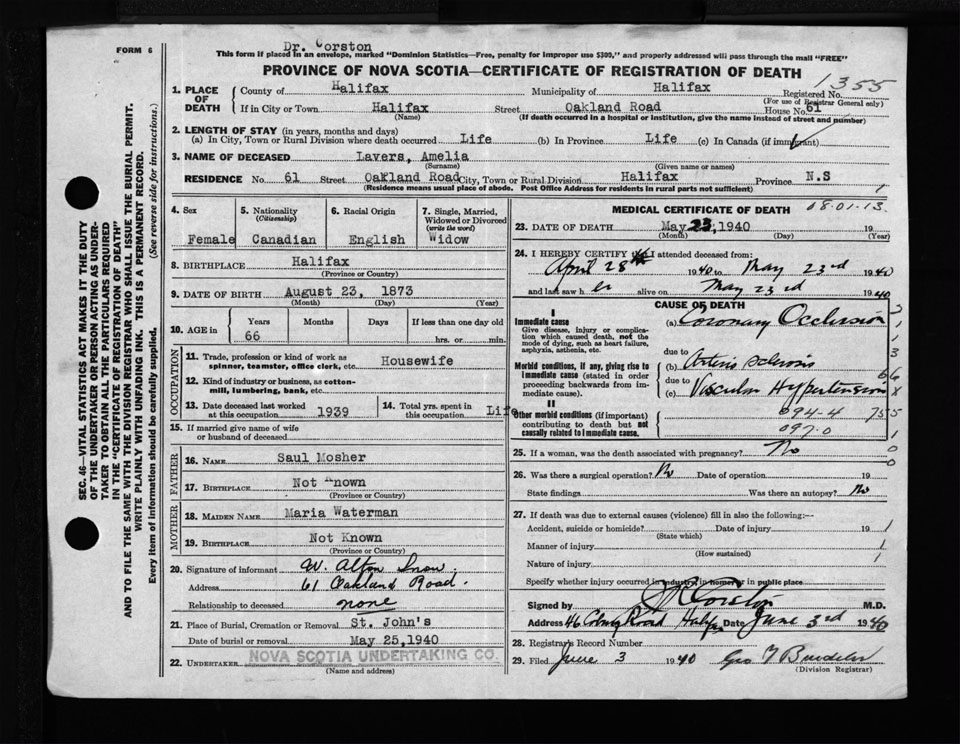 FORM 6
Dr. Corston
This form if placed in an envelope, marked "Dominion Statistics—Free, penalty for improper use $300," and properly addressed will pass through the mail "FREE"
PROVINCE OF NOVA SCOTIA—CERTIFICATE OF REGISTRATION OF DEATH
1355
1. PLACE OF DEATH
County of Halifax Municipality of Halifax Registered No.
(For use of Registrar General only)
If in City or Town Halifax Street Oakland Road House No. 61
(Name) (If death occurred in a hospital or institution, give the name instead of street and number)
2. LENGTH OF STAY (in years, months and days)
(a) In City, Town or Rural Division where death occurred Life (b) In Province Life (c) In Canada (if immigrant)
3. NAME OF DECEASED Lavers, Amelia
(Surname) (Given name or names)
RESIDENCE No. 61 Street Oakland Road City, Town or Rural Division Halifax Province N.S
(Residence means usual place of abode. Post Office Address for residents in rural parts not sufficient) 1
4. Sex Female
5. Nationality (Citizenship) Canadian
6. Racial Origin English
7. Single, Married, Widowed or Divorced (write the word) Widow
8. BIRTHPLACE Halifax
(Province or Country)
9. DATE OF BIRTH August 23, 1873
(Month) (Day) (Year)
10. AGE in Years Months Days If less than one day old
66 hrs. or min.
OCCUPATION
11. Trade, profession or kind of work as spinner, teamster, office clerk, etc. Housewife
12. Kind of industry or business, as cotton-mill, lumbering, bank, etc.
13. Date deceased last worked at this occupation 1939
14. Total yrs. spent in this occupation Life
15. If married give name of wife or husband of deceased
FATHER
16. NAME Saul Mosher
17. BIRTHPLACE Not Known
(Province or Country)
MOTHER
18. MAIDEN NAME Maria Waterman
19. BIRTHPLACE Not Known
(Province or Country)
20. Signature of informant W. Alton Snow
Address 61 Oakland Road.
Relationship to deceased none
21. Place of Burial, Cremation or Removal St. John's
Date of burial or removal May 25,1940
22. UNDERTAKER NOVA SCOTIA UNDERTAKING CO.
(Name and address)
MEDICAL CERTIFICATE OF DEATH 08.01.13
23. DATE OF DEATH May 23,1940 19
(Month) (Day) (Year)
24. I HEREBY CERTIFY that I attended deceased from:
April 28th 1940 to May 23rd 1940
and last saw her alive on May 23rd 1940
CAUSE OF DEATH
I
Immediate cause
Give disease, injury or complication which caused death, not the mode of dying, such as heart failure, asphyxia, asthenia, etc.
(a) Coronary Occlusion
due to
Morbid conditions, if any, giving rise to immediate cause (stated in order proceeding backwards from immediate cause).
(b) Arterio Sclerosis
due to
(c) Vascular Hypertension
II
Other morbid conditions (if important) contributing to death but not causally related to immediate cause.
094-4
097.0
25. If a woman, was the death associated with pregnancy? No
26. Was there a surgical operation? No Date of operation 19
State findings Was there an autopsy? No
27. If death was due to external causes (violence) fill in also the following:—
Accident, suicide or homicide? Date of injury 19 1
(State which)
Manner of injury 1
(How sustained)
Nature of injury 1
Specify whether injury occurred in industry, in home, or in public place
Signed by Corston M.D.
Address 46 Coburg Road Halifax Date June 3rd 1940
28. Registrar's Record Number
29. Filed June 3 1940 Geo
(Division Registrar)
SEC. 46—VITAL STATISTICS ACT MAKES IT THE DUTY
OF THE UNDERTAKER OR PERSON ACTING AS UNDER-
TAKER TO OBTAIN ALL THE PARTICULARS REQUIRED
IN THE "CERTIFICATE OF REGISTRATION OF DEATH"
AND TO FILE THE SAME WITH THE DIVISION REGISTRAR WHO SHALL ISSUE THE BURIAL PERMIT.
WRITE PLAINLY WITH UNFADING INK. THIS IS A PERMANENT RECORD.
Every item of information should be carefully supplied. (See reverse side for instructions.)